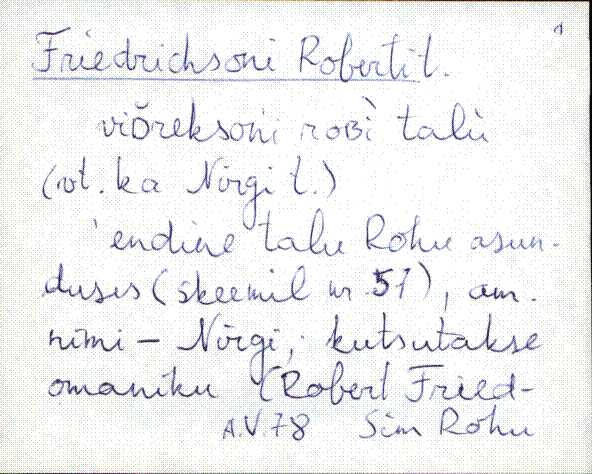 1
Friedrichsoni Roberti t.
viÒreksoni roʙì talù
(vt. ka Nõrgi t.)
endine talu Rohu asun-
duses (skeemil nr. 57), am.
nimi – Nõrgi, kutsutakse
omaniku (Robert Fried-
A.V.78 Sim Rohu